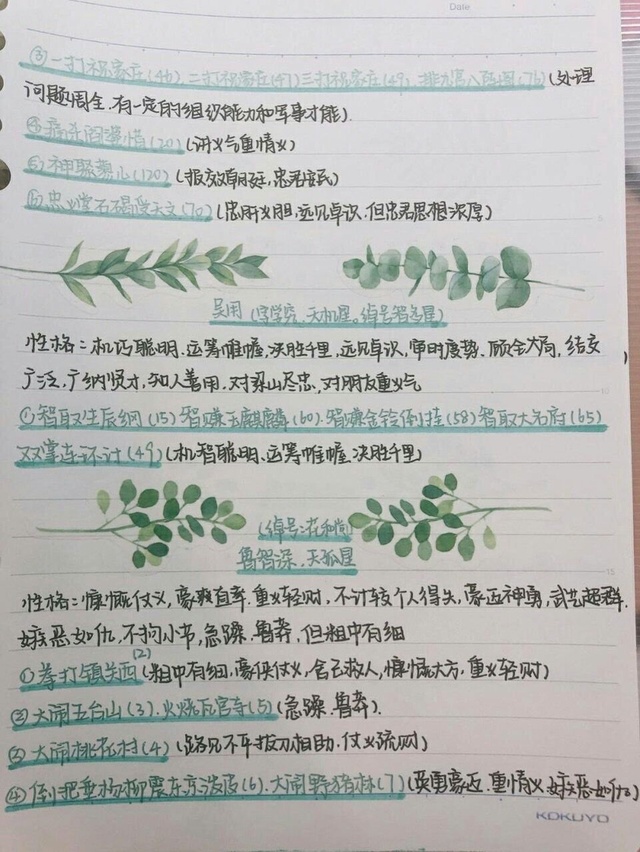 Date
③一打祝家庄(46).二打祝家庄(47)三打祝家庄(49).排九宫八卦图(76)(处理
问题周全.有一定的组织能力和军事才能).
④ (20)(讲义气重情义)
⑤神聚蓼儿(120)(报效朝廷,忠君安民)
⑥忠义堂石碣受天文(70)(忠肝义胆,远见卓识.但忠君思想浓厚)
吴用(字学究.天机星。绰号智多星)
性格:机巧聪明.运筹帷幄,决胜千里,远见卓识,审时度势.顾全大局,结交
广泛,广纳贤才,知人善用.对梁山尽忠,对朋友重义气
①智取生辰纲(15)智赚玉麒麟(60).智赚金铃吊挂(58)智取大名府(65)
双掌连环计(49)(机智聪明.运筹帷幄,决胜千里)
(绰号:花和尚
鲁智深.天孤星
性格:慷慨仗义,豪爽直率.重义轻财,不计较个人得失,豪迈神勇,武艺超群.
嫉恶如仇.不拘小节,急躁.鲁莽,但粗中有细
①拳打镇关西(2)(粗中有细,豪侠仗义,舍己救人,慷慨大方,重义轻财)
②大闹五台山(3).火烧瓦官寺(5)(急躁.鲁莽).
③大闹桃花村(4)(路见不平拔刀相助.仗义疏财)
④倒把垂杨柳震东京泼皮(6).大闹野猪林(7)(英勇豪迈.重情义.嫉恶如仇)
KOKUYO